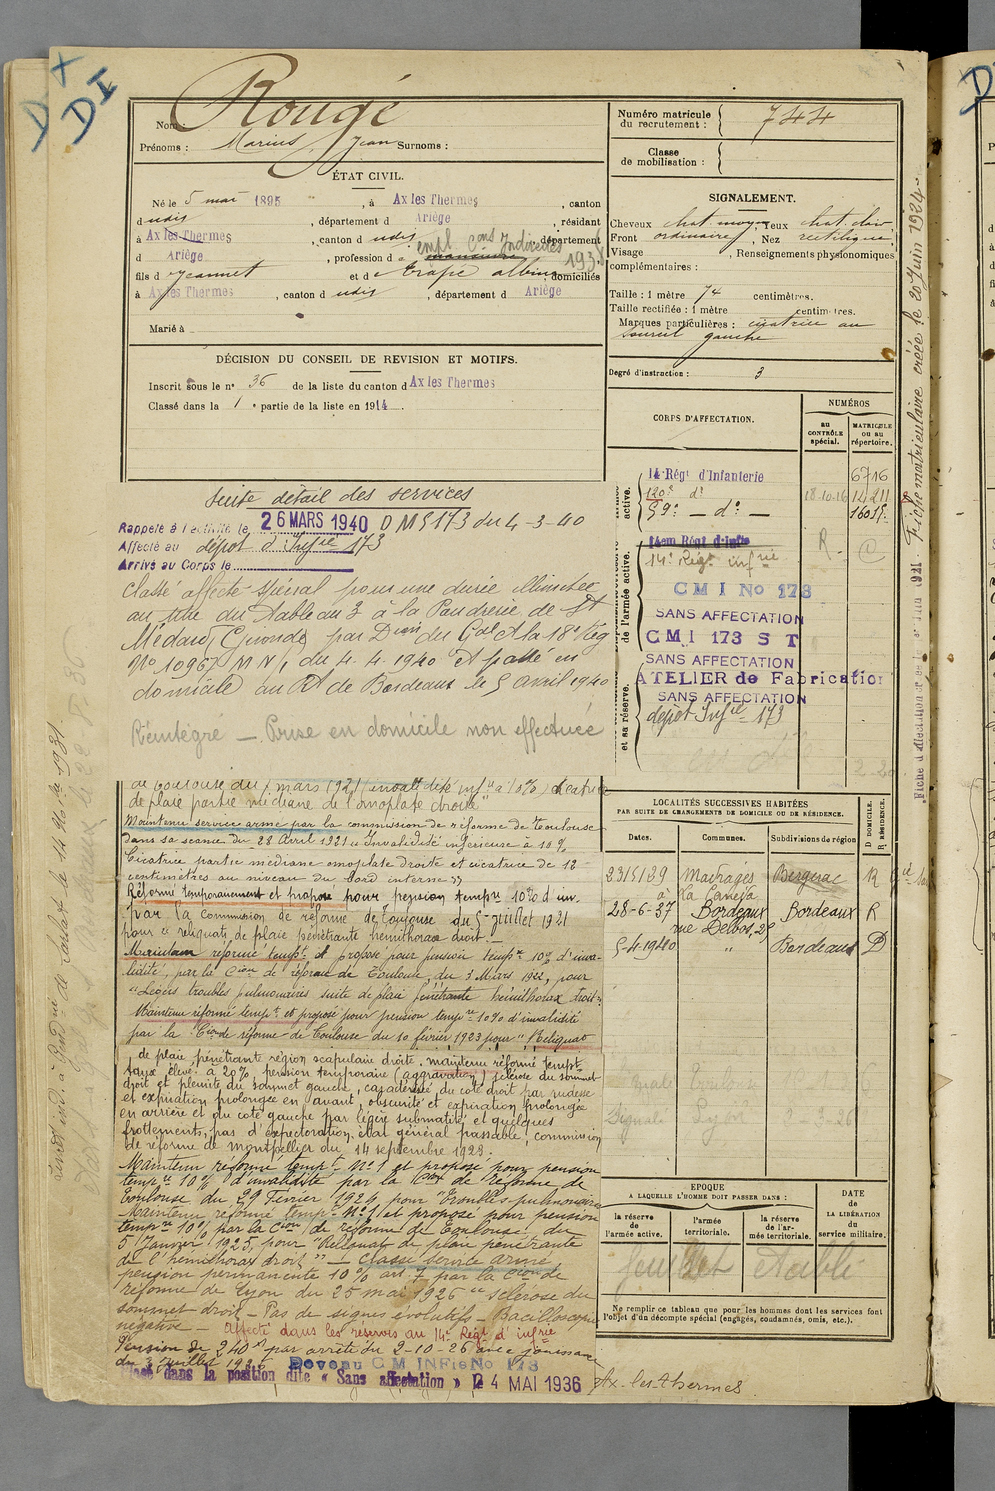 D X
DI
Nom : Rougé
Prénoms : Marius Jean Surnoms :
ÉTAT CIVIL.
Né le 5 mai 1895, à Ax les Thermes, canton
d udis, département d Ariège, résidant
à Ax les Thermes, canton d udis, département
d Ariège, profession d e manœuvre empl. Cons Indirectes 1938
fils d e Jeannet et d e Trape Albine domiciliés
à Ax les Thermes, canton d udis, département d Ariège
Marié à
DÉCISION DU CONSEIL DE REVISION ET MOTIFS.
Inscrit sous le n° 36 de la liste du canton d Ax les Thermes
Classé dans la 1e partie de la liste en 1914.
Numéro matricule du recrutement : 744
Classe de mobilisation :
SIGNALEMENT.
Cheveux chat. moyen, Yeux chat. clair
Front ordinaire, Nez rectiligne
Visage, Renseignements physionomiques
complémentaires :
Taille : 1 mètre 74 centimètres.
Taille rectifiée : 1 mètre centimètres.
Marques particulières : cicatrice au
sourcil gauche
Degré d'instruction : 3
CORPS D'AFFECTATION.
NUMÉROS
au CONTRÔLE spécial.
MATRICULE ou au répertoire.
active.
14 Régt d'Infanterie 6716
120e d° 18-10-16 14211
59e — d° — 16019
de l'armée active.
14em Régt d'Infie R
14e Régt infrie
C M I No 173
SANS AFFECTATION
CMI 173 S T
SANS AFFECTATION
ATELIER de Fabrication
SANS AFFECTATION
et sa réserve.
dépôt Infie 173
Suite détail des services
Rappelé à l'activité le 26 MARS 1940 D M 5173 du 4-3-40
Affecté au dépôt d'Infie 173
Arrivé au Corps le
Classé affecté spécial pour une durée illimitée
au titre du Tableau 3 à la Poudrerie de St
Médard (Gironde) par Dion du Gal Ct la 18e Rég
No 10967 M N/1 du 4.4.1940 Et passé en
domicile au Rt de Bordeaux le 5 avril 1940
Réintegre — Prise en domicile non effectuée
de Toulouse du 7 mars 1921 (invalidité infre à 10%) cicatrice
de plaie partie médiane de l'omoplate droite"
Maintenu service armé par la commission de réforme de Toulouse
dans sa séance du 28 Avril 1921 "Invalidité inférieure à 10%
Cicatrice partie médiane omoplate droite et cicatrice de 12
centimètres au niveau du bord interne"
Réformé temporairement et proposé pour pension tempre 10% d'inv.
par la commission de réforme de Toulouse du 5 juillet 1921
pour "reliquats de plaie pénétrante hémithorax droit.
Maintenu réformé tempt et proposé pour pension tempre 10% d'inva-
lidité, par la Cion de réforme de Toulouse, du 3 Mars 1922, pour
"Légers troubles pulmonaires suite de plaie pénétrante hémithorax droit"
Maintenu réformé tempt et proposé pour pension tempre 10% d'invalidité
par la Cion de réforme de Toulouse du 10 février 1923 pour "Reliquat
de plaie pénétrante région scapulaire droite. maintenu réformé tempt
taux élevé à 20%, pension temporaire (aggravation) sclérose du sommet
droit et pleurite du sommet gauche, caractérisé du côté droit par rudesse
et expiration prolongée en avant, obscurité et expiration prolongée
en arrière et du côté gauche par légère submatité, et quelques
frottements, pas d'expectoration, état général passable, commission
de réforme de Montpellier du 14 septembre 1923.
Maintenu réformé tempt N°1 et proposé pour pension
tempre 10% d'invalidité par la Con de réforme de
Toulouse du 29 Février 1924 pour "Troubles pulmonaires
Maintenu réformé tempre N°1 et proposé pour pension
tempre 10% par la Cion de réforme de Toulouse, du
5 Janvier 1925, pour "Reliquat de plaie pénétrante
de l'hémithorax droit" — Classé service armé
pension permanente 10% art. 7 par la Cion de
réforme de Lyon du 25 mai 1926 "sclérose du
sommet droit — Pas de signes évolutifs — Bacilloscopie
négative — Affecté dans les réserves au 14e Régt d'infrie
Pension de 240 f par arrêté du 2-10-26 avec jouissance
du 3 juillet 1926 Devenu C M INFie No 173
Classé dans la position dite « Sans affectation » le 24 MAI 1936
Ax-les-thermes
LOCALITÉS SUCCESSIVES HABITÉES
PAR SUITE DE CHANGEMENTS DE DOMICILE OU DE RÉSIDENCE.
Dates. Communes. Subdivisions de région
D DOMICILE. R RÉSIDENCE.
23/5/29 Bergerac R
28-6-37 Bordeaux Bordeaux R
rue Delbos, 25
5-4-1940 " Bordeaux D
Signalé Lyon 2-3-26
EPOQUE
A LAQUELLE L'HOMME DOIT PASSER DANS :
la réserve de l'armée active.
l'armée territoriale.
la réserve de l'armée territoriale.
DATE DE LA LIBÉRATION du service militaire.
feuillet établi
Ne remplir ce tableau que pour les hommes dont les services font
l'objet d'un décompte spécial (engagés, condamnés, omis, etc.).
Fiche matriculaire créée le 20 Juin 1924